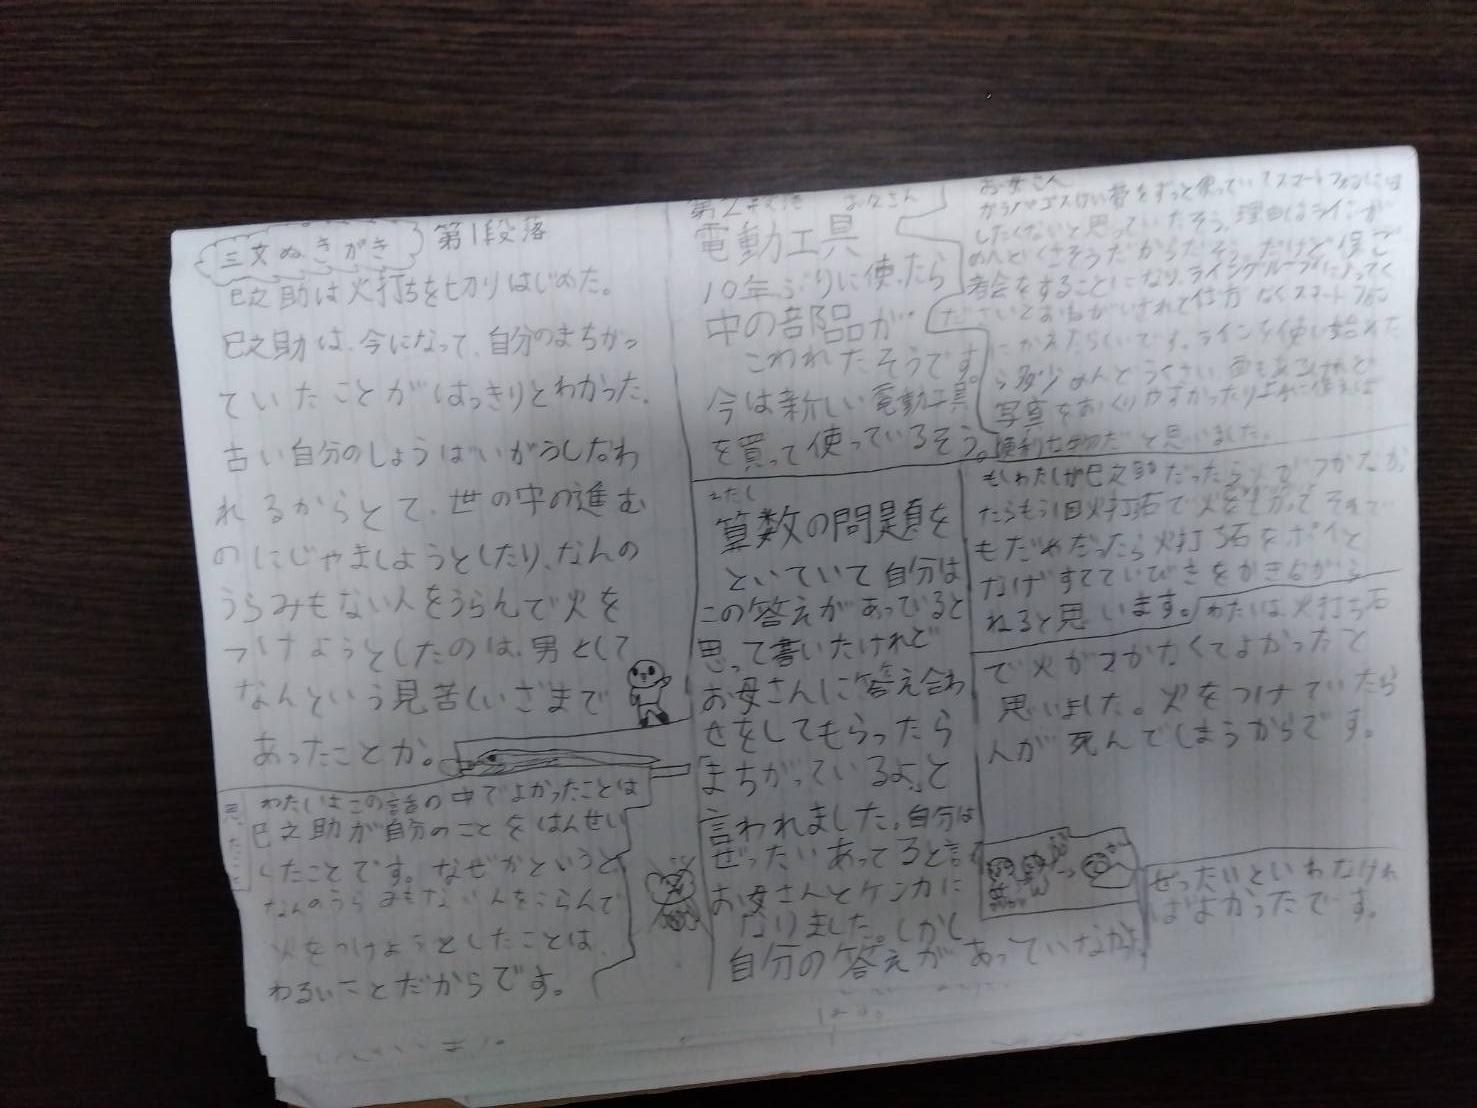 三文ぬきがき
第1段落
巳之助は火打ちを切りはじめた。
巳之助は、今になって、自分のまちがっ
ていたことがはっきりとわかった。
古い自分のしょうばいがうしなわ
れるからとて、世の中の進む
のにじゃましようとしたり、なんの
うらみもない人をうらんで火を
つけようとしたのは、男として
なんという見苦しいざまで
あったことか。
わたしはこの話の中でよかったことは
巳之助が自分のことをはんせい
したことです。なぜかというと
なんのうらみもない人をうらんで
火をつけようとしたことは、
わるいことだからです。
第2段落 お父さん
電動工具
10年ぶりに使ったら
中の部品が
こわれたそうです。
今は新しい電動工具
を買って使っているそう。
お母さん
ガラパゴスけい帯をずっと使っていてスマートフォンには
したくないと思っていたそう。理由はラインが
めんどくさそうだからだそう。だけど、保ご
者会をすることになり、ライングループに入ってく
ださいとおねがいされて仕方なくスマートフォン
にかえたらしいです。ラインを使い始めた
ら多少めんどうくさい面もあるけれど
写真をおくりやすかったり上手に使えば
便利なものだと思いました。
わたし
算数の問題を
といていて自分は
この答えがあっていると
思って書いたけれど
お母さんに答え合わ
せをしてもらったら
「まちがっているよ」と
言われました。自分は
ぜったいあってると言って
お母さんとケンカに
なりました。しかし
自分の答えがあっていなかった
ぜったいといわなけれ
ばよかったです。
もしわたしが巳之助だったら火がつかなか
ったらもう1回火打ち石で火を
もだめだったら火打ち石をポイと
なげすてていびきをかきながら
ねると思います。
わたしは火打ち石
で火がつかなくてよかったと
思いました。火をつけていたら
人が死んでしまうからです。